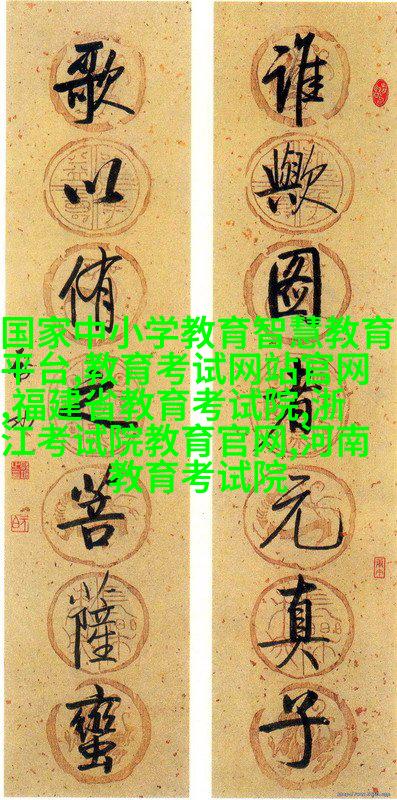 谁歟图者元真子
歌以侑之菩薩蠻
国家中小学教育智慧教育
平台,教育考试网站官网
,福建省教育考试院,浙
江考试院教育官网,河南
教育考试院